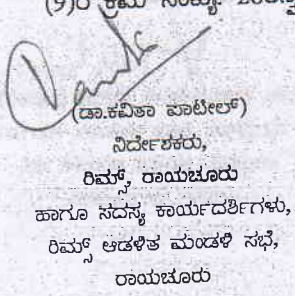 (9)ರ ಕ್ರಮ ಸಂಖ್ಯೆ
(ಡಾ.ಕವಿತಾ ಪಾಟೀಲ್)
ನಿರ್ದೇಶಕರು,
ರಿಮ್ಸ್, ರಾಯಚೂರು
ಹಾಗೂ ಸದಸ್ಯ ಕಾರ್ಯದರ್ಶಿಗಳು,
ರಿಮ್ಸ್ ಆಡಳಿತ ಮಂಡಳಿ ಸಭೆ,
ರಾಯಚೂರು